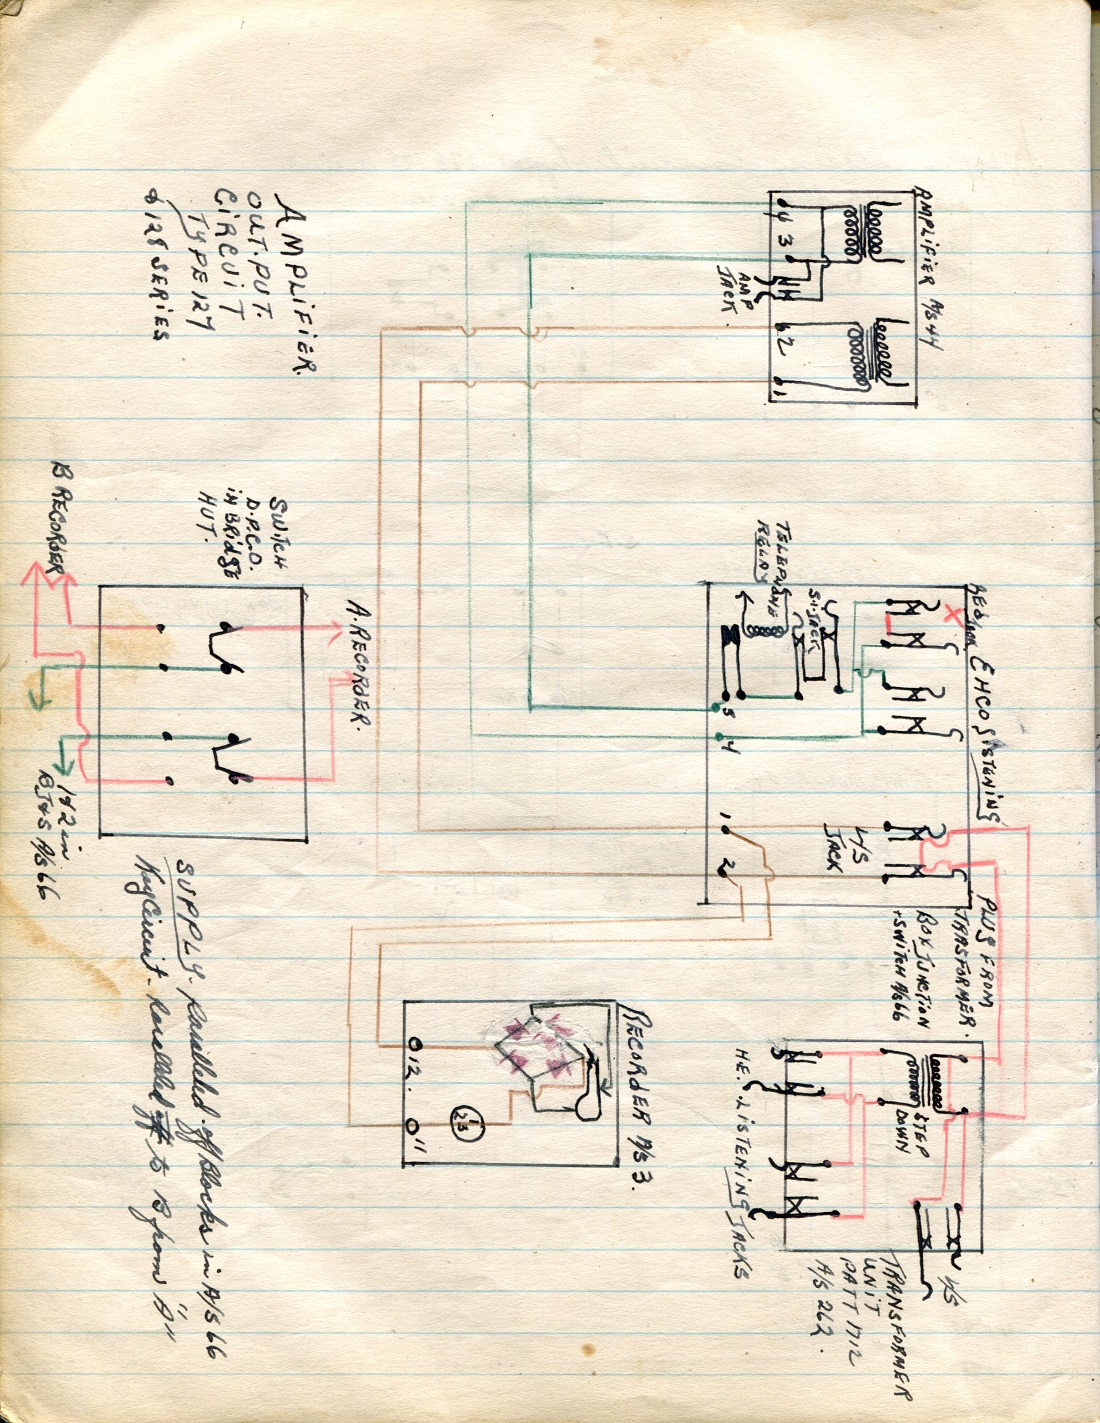 AMPLIFIER.
OUT.PUT.
CIRCUIT
TYPE 127
& 128 SERIES
AMPLIFIER A/S 44
4
3
AMP
JACK
2
1
SWITCH
D.P.C.O.
IN BRIDGE
HUT.
B RECORDER
A. RECORDER.
1 & 2 in
A/S 66
TELEPHONE
RELAY
S.T. JACK
ECHO LISTENING
3
4
1
2
L/S
JACK
PLUG FROM
TRANSFORMER.
BOX JUNCTION
+ SWITCH A/S 66
SUPPLY. Paralleled off Blocks in A/S 66
Key Circuit. Paralleled off to B from "A"
RECORDER A/S 3.
12.
11
H.E. LISTENING JACKS
STEP
DOWN
L/S
TRANSFORMER
UNIT
PATT 1712
A/S 262.